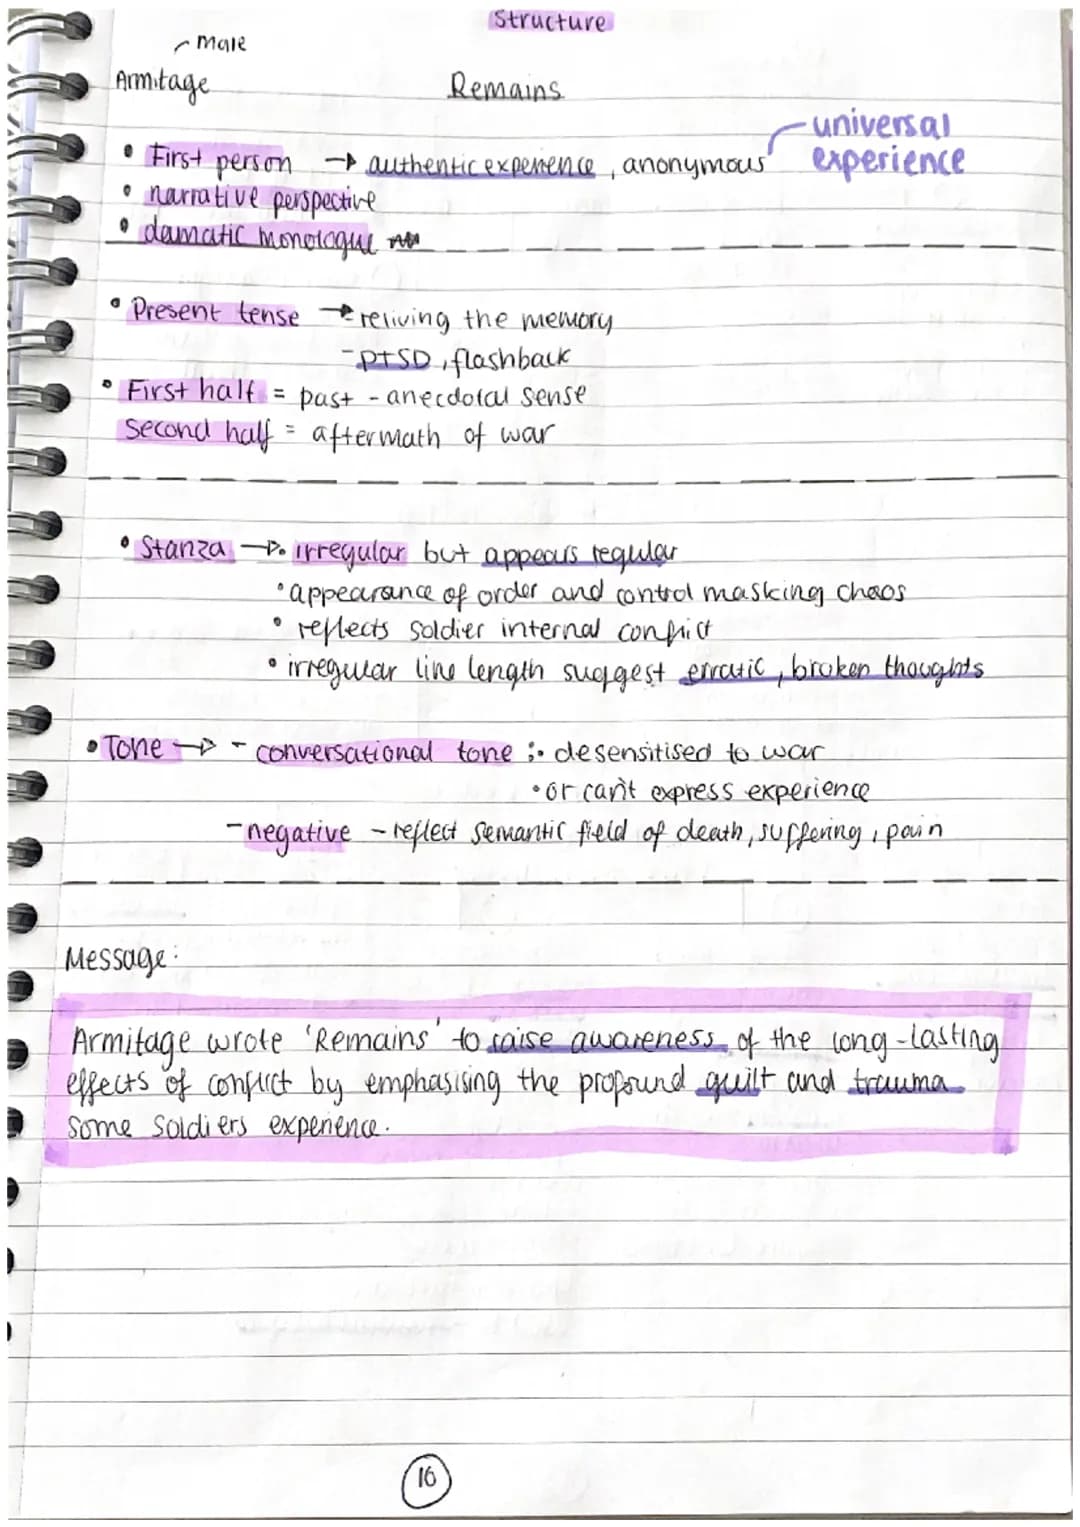 Structure
male
Armitage Remains
universal
• First person → authentic experience, anonymous experience
• narrative perspective
• damatic monologue
• Present tense → reliving the memory
- PTSD, flashback
• First half = past - anecdotal sense
Second half = aftermath of war
• Stanza → • irregular but appears regular
• appearance of order and control masking chaos
• reflects soldier internal conflict
• irregular line length suggest erratic, broken thoughts
• Tone → - conversational tone : • desensitised to war
• or can't express experience
- negative - reflect semantic field of death, suffering, pain
Message:
Armitage wrote 'Remains' to raise awareness of the long-lasting
effects of conflict by emphasising the profound guilt and trauma
some soldiers experience.
16